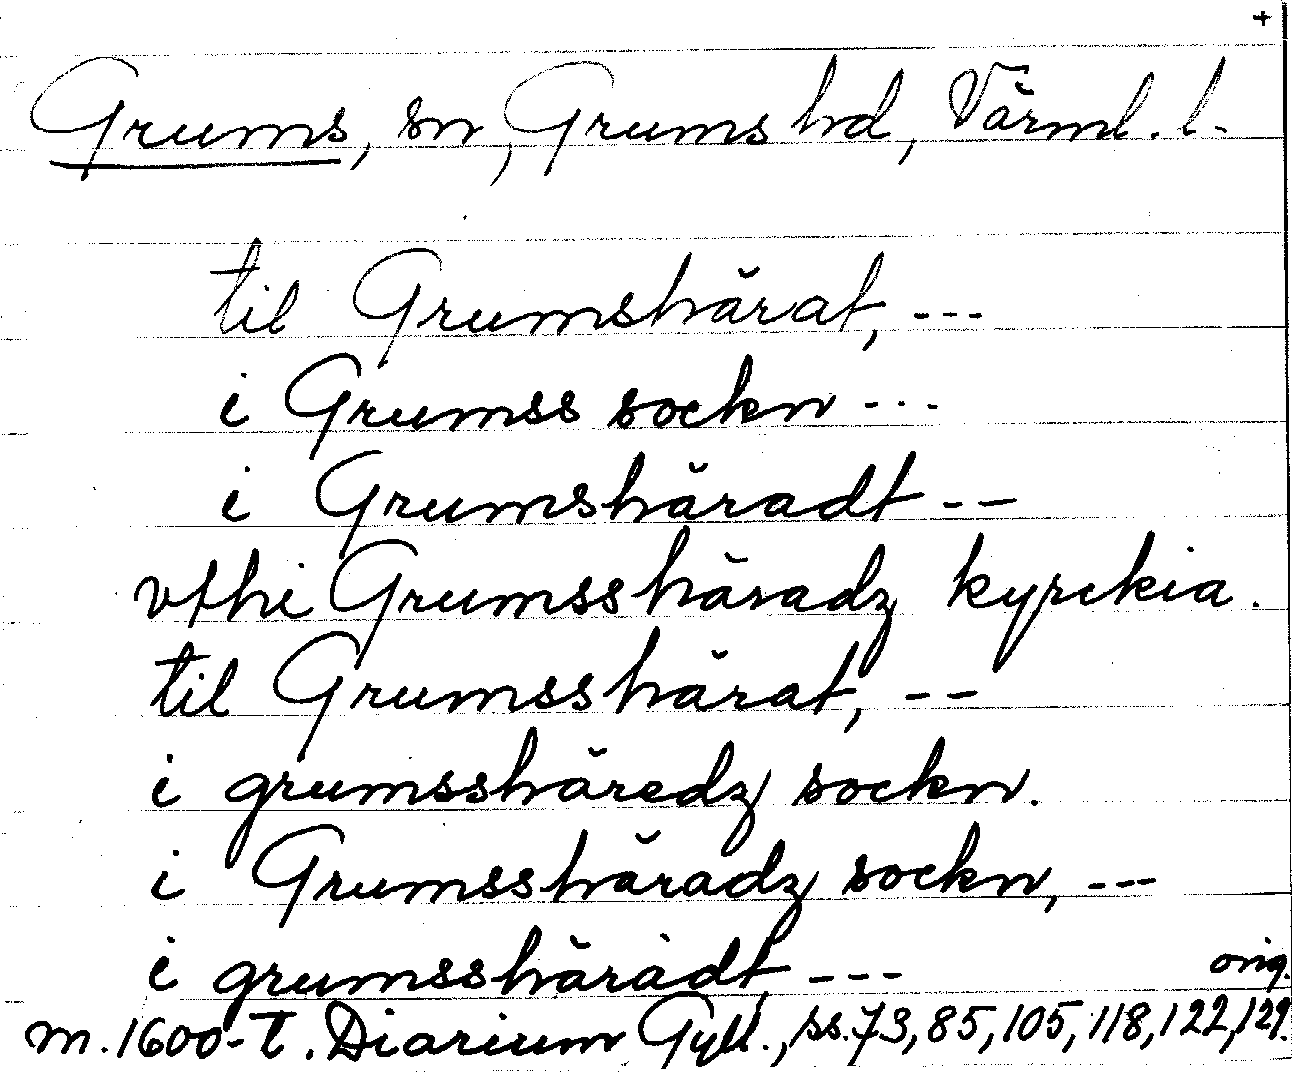 +
Grums, sn, Grums hd, Värml. l.
til Grumshärat, ---
i Grumss sockn ---
i Grumshäradt --
vthi Grumsshäradz kyrckia.
til Grumsshärat, --
i grumsshäredz sockn.
i Grumsshäradz sockn, ---
i grumsshärädt, ---
orig.
m. 1600-t. Diarium Gyll., ss. 73, 85, 105, 118, 122, 129.